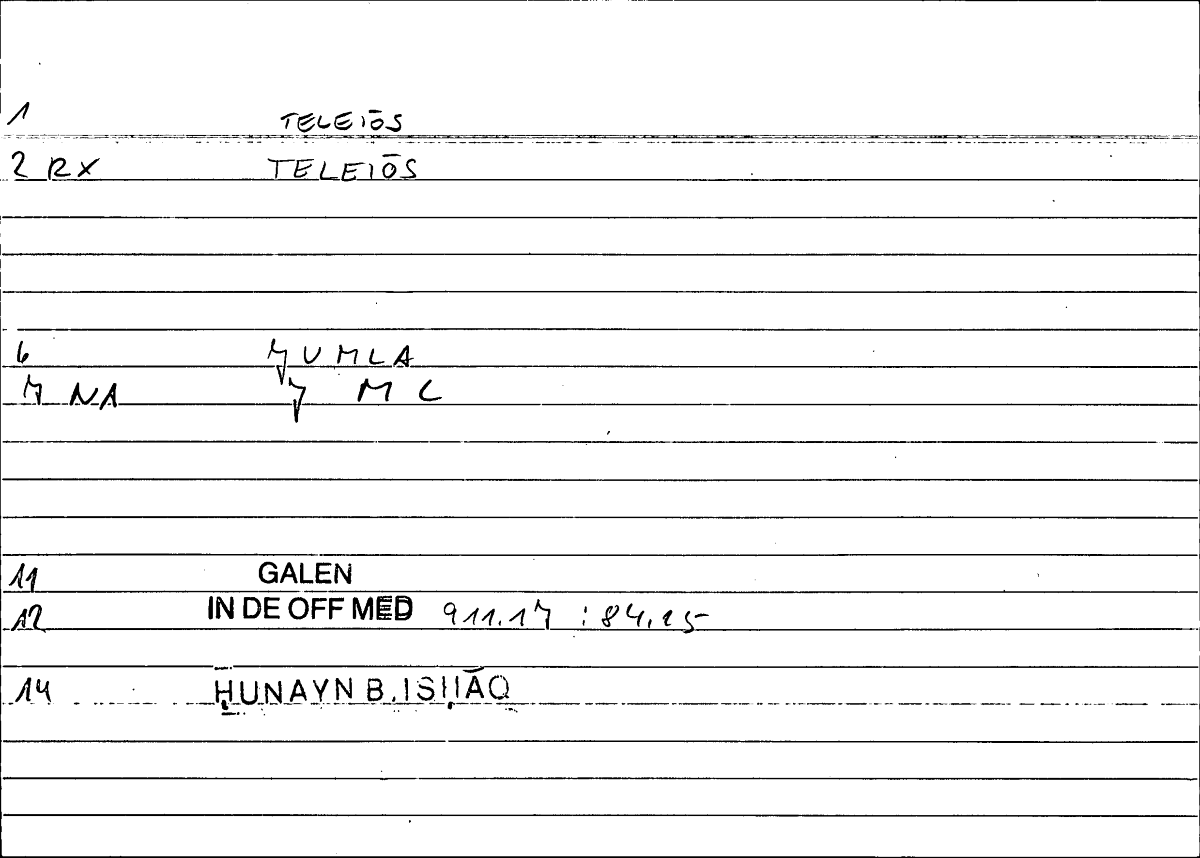 1 TELEIŌS
2 RX TELEIŌS
6 JUMLA
7 NA J M L
11 GALEN
12 IN DE OFF MED 911.17 : 84.15
14 ḤUNAYN B. ISḤĀQ